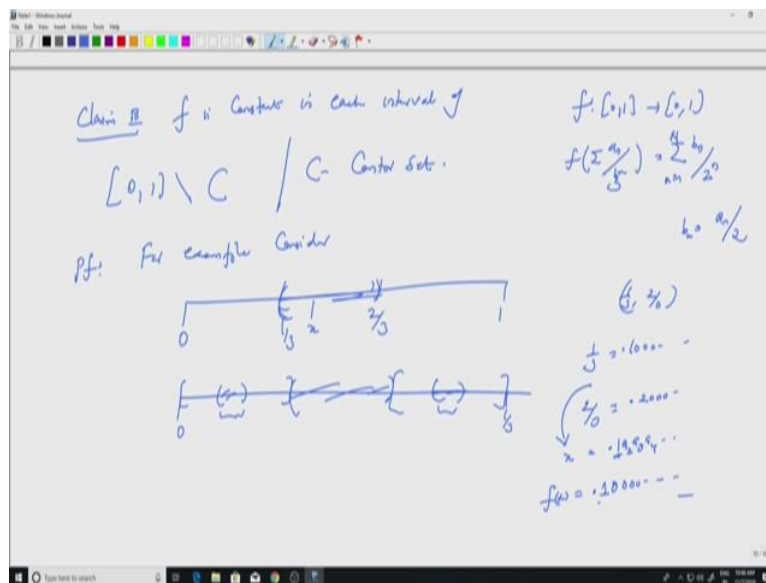 Note1 - Windows Journal
File Edit View Insert Actions Tools Help
Claim III f is Constant in each interval of
[0,1] \ C | C - Cantor Set.
Pf: For example Consider
0 1/3 x 2/3 1
0 1/3
f: [0,1] → [0,1]
f(Σ aₙ/3ⁿ) = Σ bₙ/2ⁿ
bₙ = aₙ/2
(1/3, 2/3)
1/3 = .1000 - -
2/3 = .2000 - -
x = .1a₂a₃a₄ - -
f(x) = .10000 - - -
Type here to search
ENG 10:46 AM